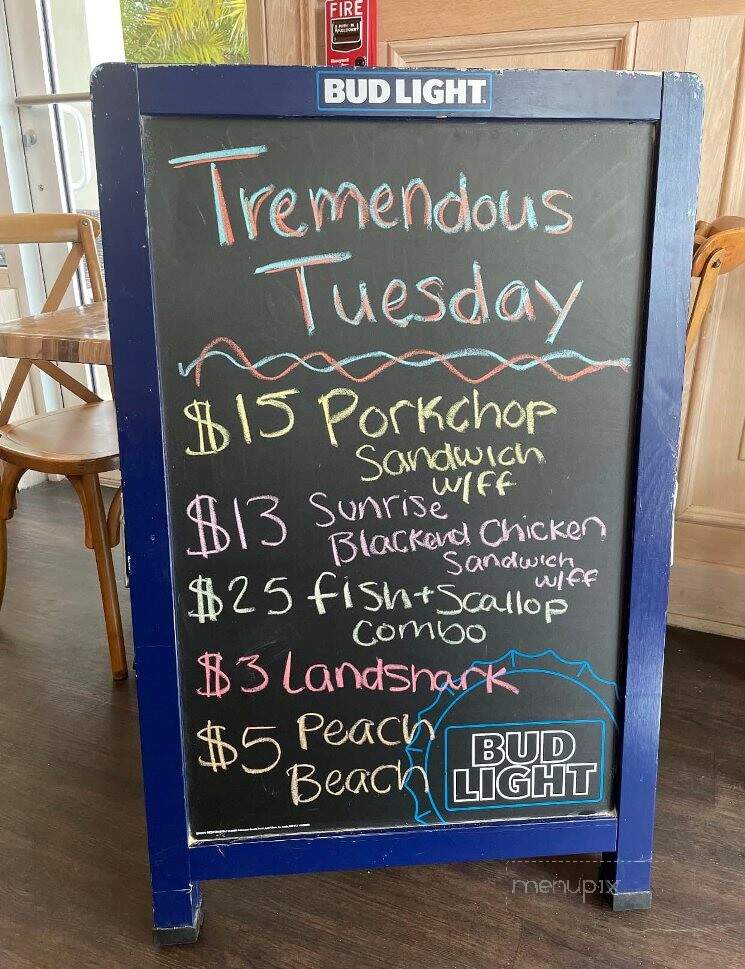 FIRE
BUD LIGHT
Tremendous
Tuesday
$15 Porkchop
Sandwich
w/ff
$13 Sunrise
Blackend Chicken
Sandwich
w/ff
$25 fish+Scallop
combo
$3 Landshark
$5 Peach
Beach
BUD
LIGHT
menupix